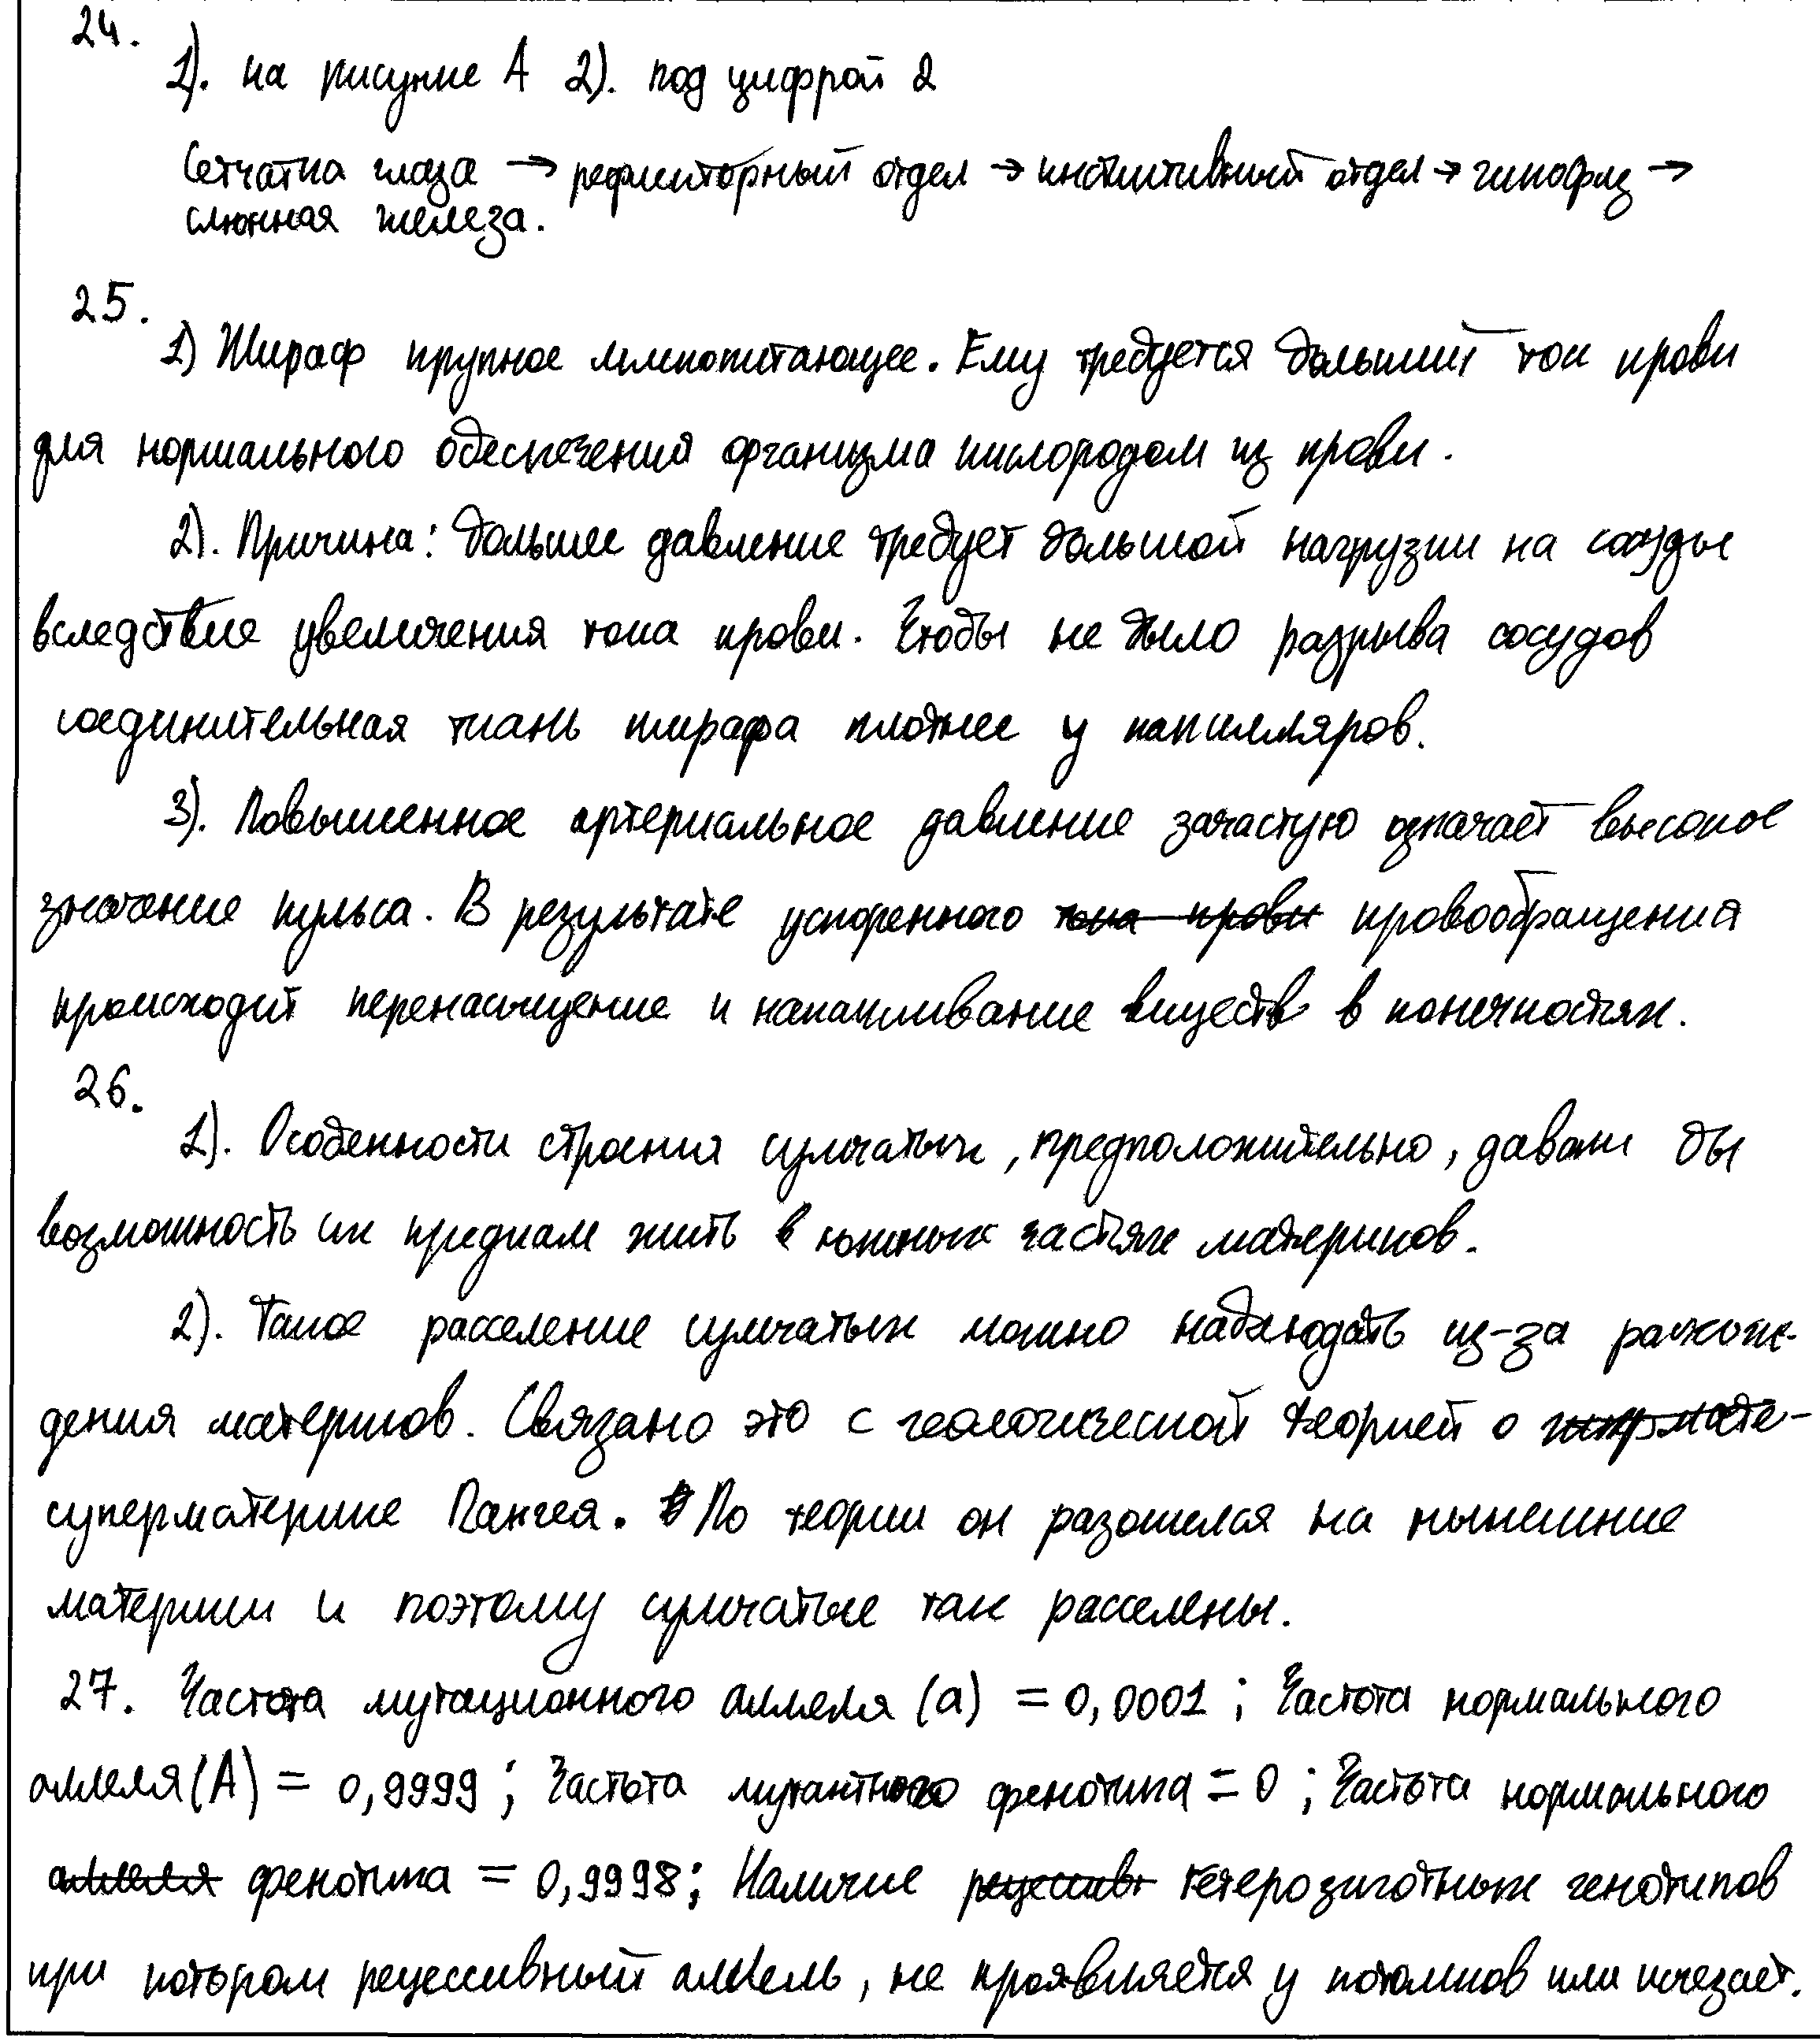 24.
1). на рисунке А 2). под цифрой 2
Сетчатка глаза → рефлекторный отдел → инстинктивный отдел → гипофиз →
слюнная железа.
25.
1) Жираф крупное млекопитающее. Ему требуется больший ток крови
для нормального обеспечения организма кислородом из крови.
2). Причина: большее давление требует большой нагрузки на сосуды
вследствие увеличения тока крови. Чтобы не было разрыва сосудов
соединительная ткань жирафа плотнее у капилляров.
3). Повышенное артериальное давление зачастую означает высокое
значение пульса. В результате ускоренного тока крови кровообращения
происходит перенасыщение и накапливание веществ в конечностях.
26.
1). Особенности строения сумчатых, предположительно, давали бы
возможность их предкам жить в южных частях материков.
2). Такое расселение сумчатых можно наблюдать из-за расхож-
дения материков. Связано это с геологической теорией о
суперматерике Пангея. По теории он разошелся на нынешние
материки и поэтому сумчатые так расселены.
27. Частота мутационного аллеля (а) = 0,0001 ; Частота нормального
аллеля (А) = 0,9999 ; Частота мутантного фенотипа = 0 ; Частота нормального
аллеля фенотипа = 0,9998; Наличие рецессивн гетерозиготных генотипов
при котором рецессивный аллель, не проявляется у потомков или исчезает.